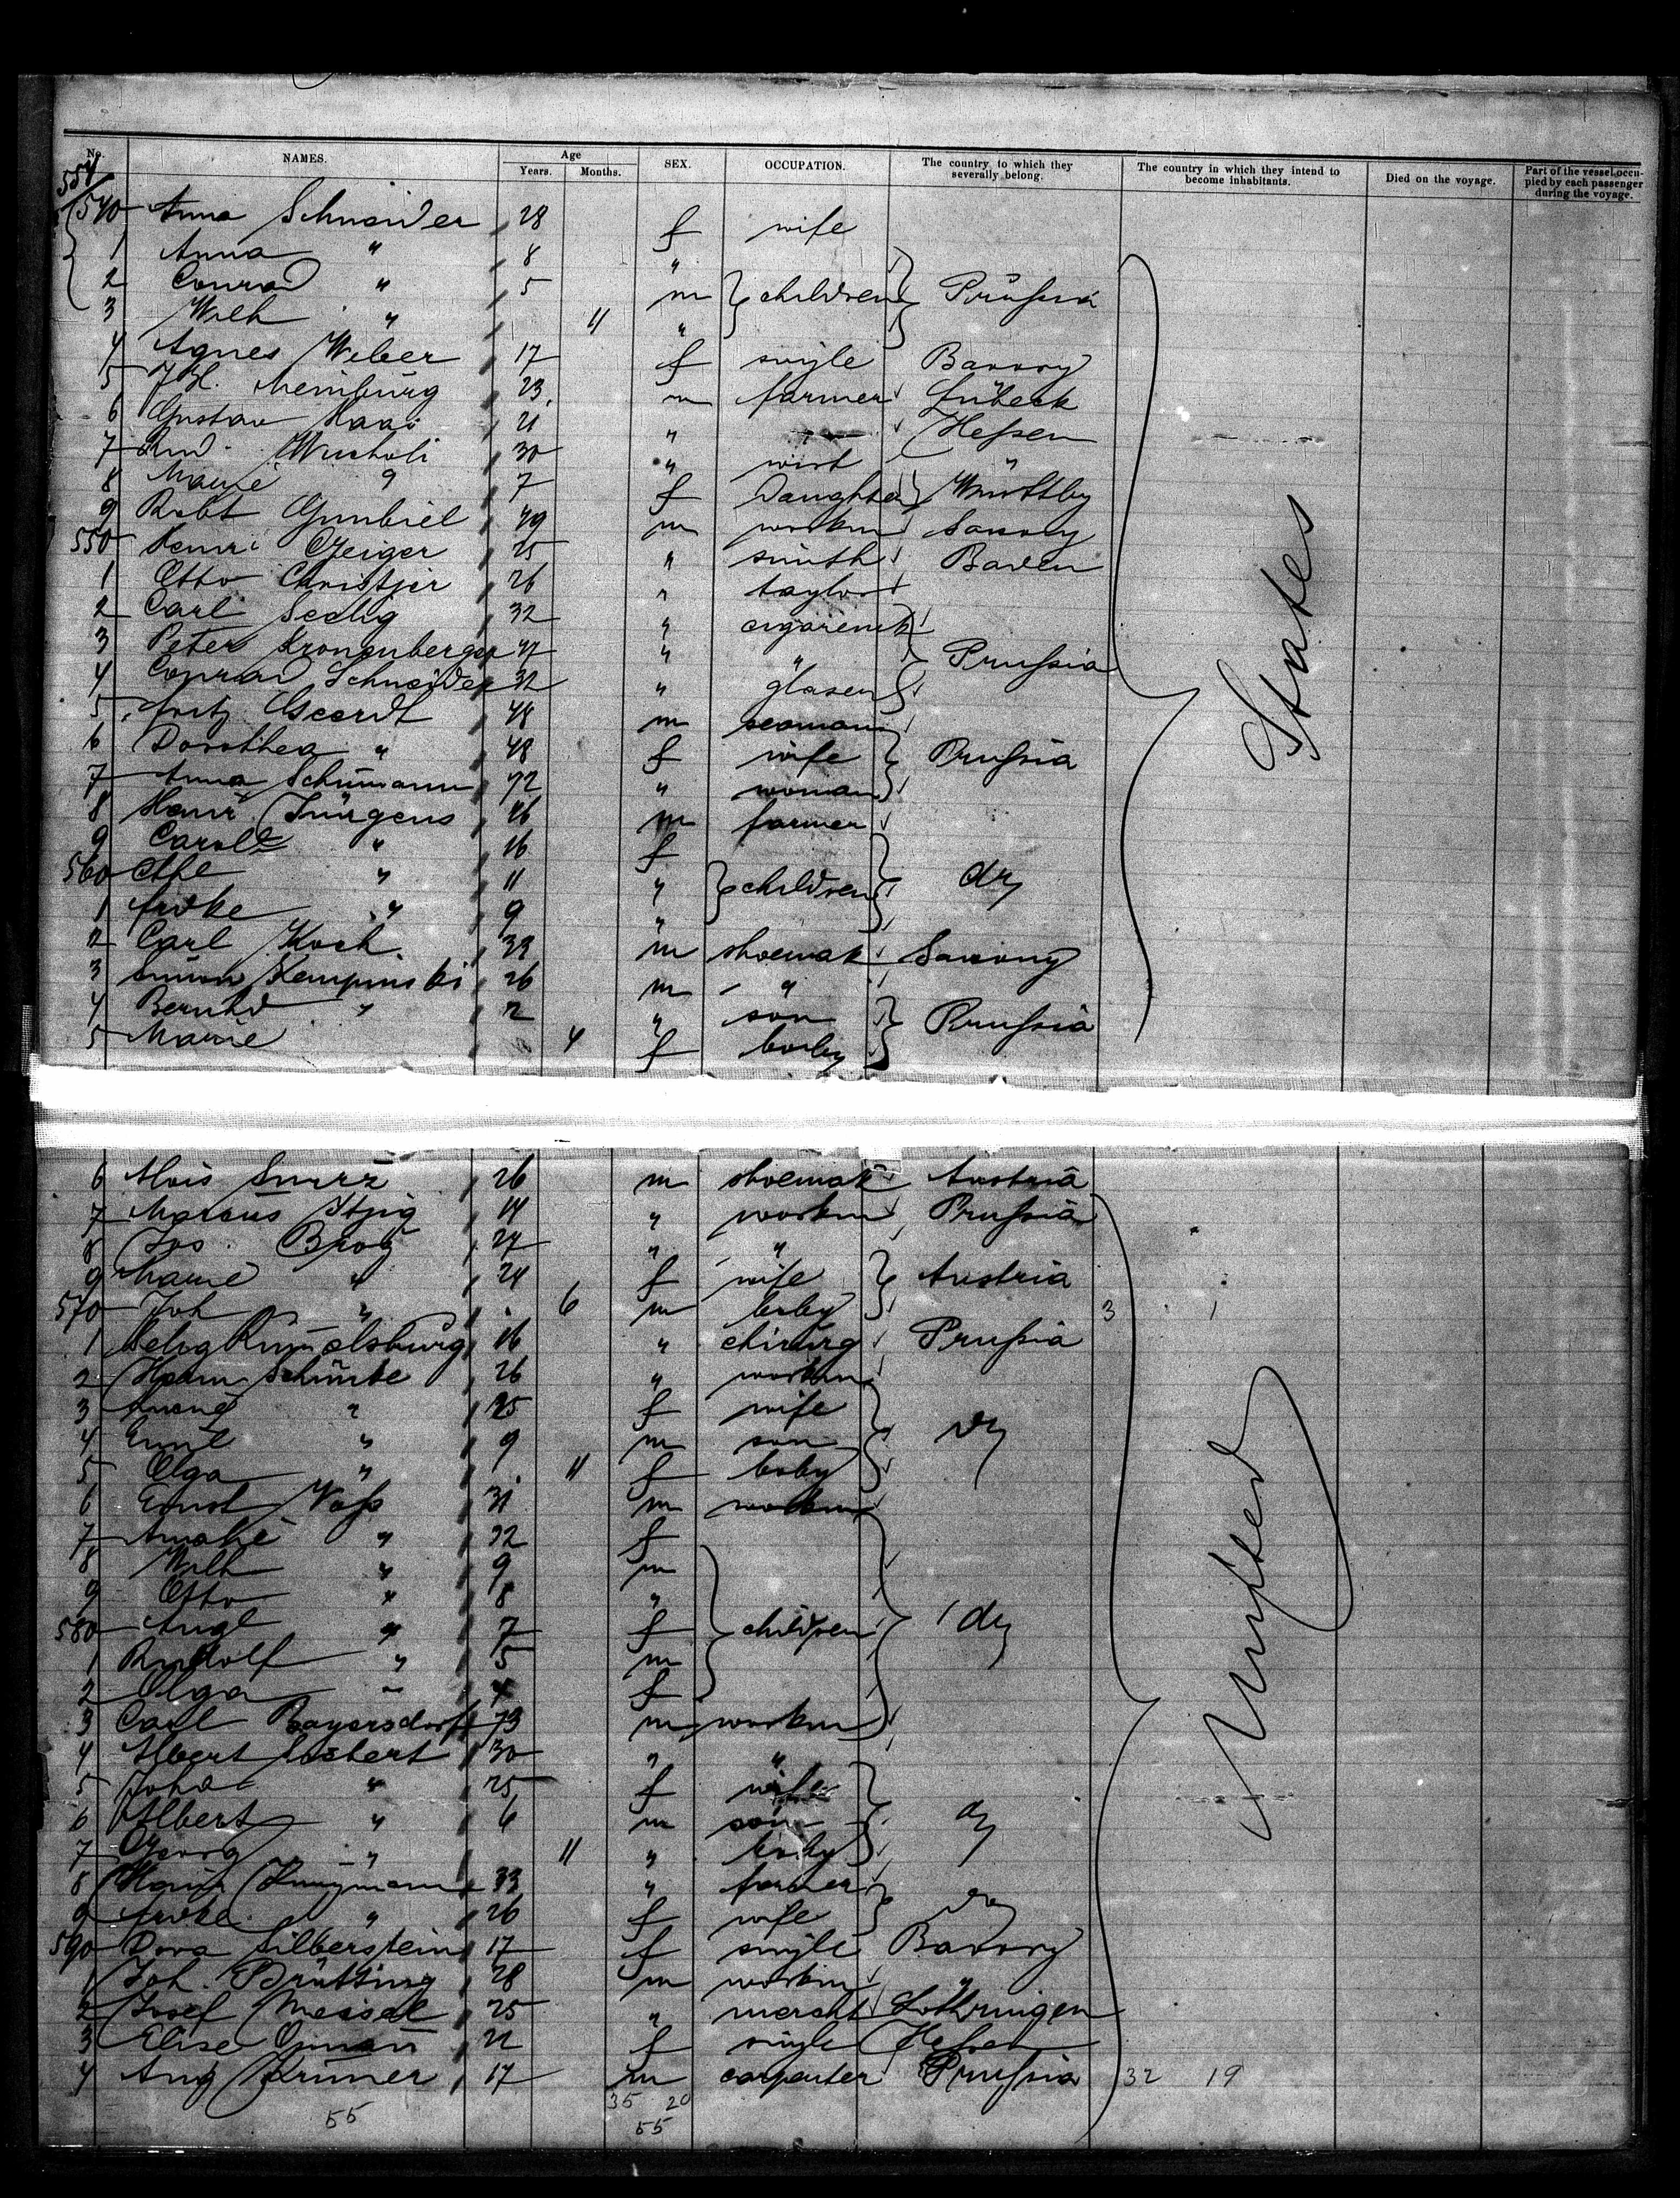 No. NAMES. Age Years. Months. SEX. OCCUPATION. The country to which they severally belong. The country in which they intend to become inhabitants. Died on the voyage. Part of the vessel occupied by each passenger during the voyage.
554
540 Anna Schneider 28 f wife
1 Anna " 8 "
2 Conrad " 5 m children Prußia
3 Wilh " 11 "
4 Agnes Weber 17 f single Bavary
5 Meinburg 23 m farmer Lübeck
6 Gustav Haas 21 " Heßen
7 30 " wirt "
8 Marie " 7 f Daughter Württbg
9 Robt Gumbiel 49 m workm Saxony
550 Henri Geiger 25 " smith Baden
1 Otto Christjer 26 " taylor
2 Carl Seelig 32 " cigaremk
3 Peter Kronenberger 47 " " Prußia
4 Conrad Schneider 32 " glaser
5 Fritz 48 m seaman
6 Dorothea " 48 f wife Prußia
7 Anna Schümann 72 " woman
8 Heinr Jürgens 46 m farmer
9 Caroll " 16 f
560 " 11 " children do
1 " 9 "
2 Carl Koch 33 m shoemak Saxony
3 Simon Kempinski 26 m "
4 Bernhd " 2 " son Prußia
5 Marie 4 f baby
States
6 Alois 26 m shoemak Austria
7 Marcus Itzig 14 " workm Prußia
8 Jos. Broz 27 " "
9 Marie " 24 f wife Austria
570 Joh " 6 m baby 3 1
1 Selig Rummelsburg 16 " chirurg Prußia
2 Herm 26 " workm
3 " 25 f wife
4 Emil " 9 m son do
5 Olga " 11 f baby
6 Ernst Voß 31 m workm
7 Amalie " 32 f
8 Wilh " 9 m
9 Otto " 8 "
580 Augl " 7 f children do
1 Rudolf " 5 m
2 Olga " 4 f
3 Carl Bayersdorff 73 m workm
4 Albert 30 " "
5 Joha " 25 f wife
6 Albert " 6 m son do
7 Georg " 11 " baby
8 33 " farmer
9 " 26 f wife do
590 Dora Silberstein 17 f single Bavary
1 Joh. Brütting 28 m workm "
2 Josef Meisel 25 " mercht Lothringen
3 Elise 22 f single Heßen
4 Aug Krüner 17 m carpenter Prußia 32 19
United
55 35 20
55